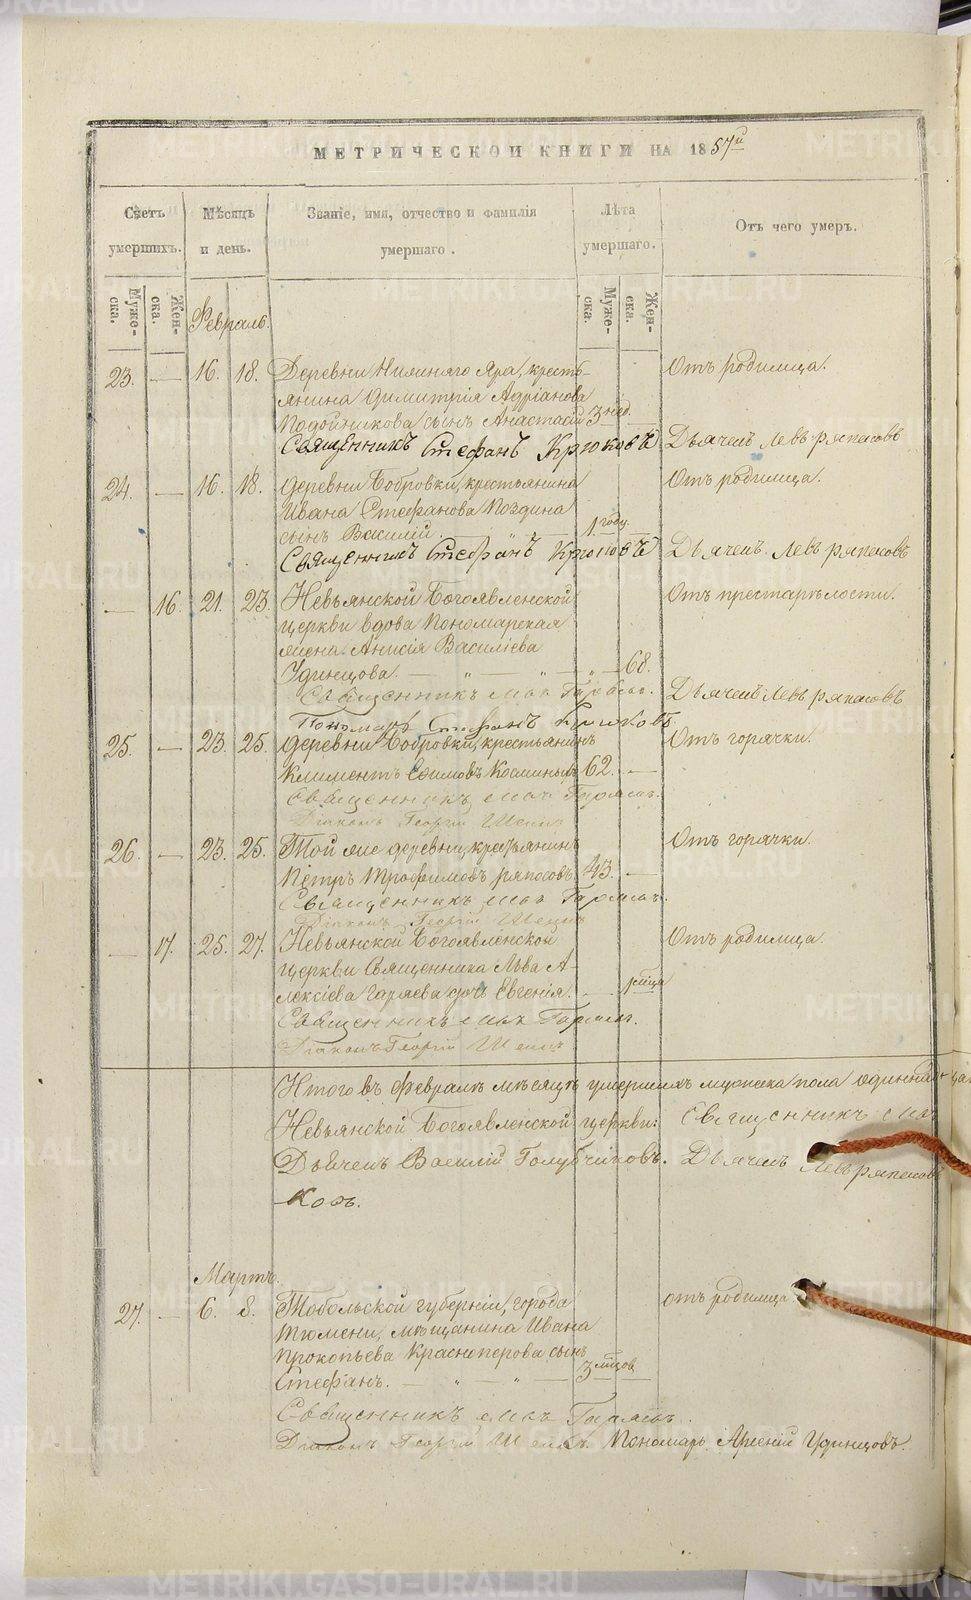 МЕТРИЧЕСКОЙ КНИГИ НА 1857й
Счетъ умершихъ.
Мѣсяцъ и день.
Званіе, имя, отчество и фамилія умершаго.
Лѣта умершаго.
Отъ чего умеръ.
Муже-ска.
Жен-ска.
Муже-ска.
Жен-ска.
Февраль.
23. — 16. 18. Деревни Нижняго Яра, кресть- Отъ родимца.
янина Димитрія Адріанова
Подойникова сынъ Анастасій 3 нед.
Священникъ Стефанъ Крюковъ Дьячекъ Левъ Ряпасовъ
24. — 16. 18. Деревни Бобровки, крестьянина Отъ родимца.
Ивана Стефанова Поздина
сынъ Василій. 1 году.
Священникъ Стефанъ Крюковъ Дьячекъ Левъ Ряпасовъ
— 16. 21. 23. Невьянской Богоявленской Отъ престарѣлости.
церкви вдова Пономарская
жена Анисія Василіева
Удинцова. — „ — „ — „ — 68.
Священникъ Левъ Гаряевъ. Дьячекъ Левъ Ряпасовъ
Пономарь Стефанъ Крюковъ
25. — 23. 25. Деревни Бобровки, крестьянинъ Отъ горячки.
Климентъ Ефимовъ 62. —
Священникъ Левъ Гаряевъ.
Діаконъ Георгій
26. — 23. 25. Той же деревни, крестьянинъ Отъ горячки.
Петръ Трофимовъ Ряпосовъ 43. —
Священникъ Левъ Гаряевъ.
Діаконъ Георгій
— 17. 25. 27. Невьянской Богоявленской Отъ родимца.
церкви Священника Льва А-
лексіева Гаряева дочь Евгенія. — 1 мѣсца
Священникъ Левъ Гаряевъ.
Діаконъ Георгій
Итого въ Февралѣ мѣсяцѣ умершихъ мужеска пола одиннад
Невьянской Богоявленской церкви: Священникъ Левъ
Дьячекъ Василій Голубчиковъ. Дьячекъ Левъ Ряпасовъ
Мартъ.
27. — 6. 8. Тобольской губерніи, города отъ родимца
Тюмени, мѣщанина Ивана
Прокопьева Красноперова сынъ
Стефанъ. — „ — „ — 3 мѣсцов
Священникъ Левъ Гаряевъ.
Діаконъ Георгій Пономарь Арсеній Удинцовъ.
METRIKI.GASO-URAL.RU